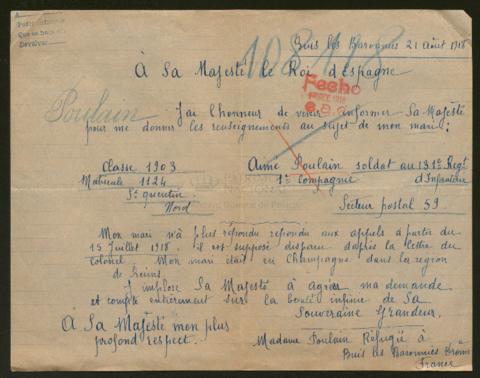 Buis les Baronnies 21 Août 1918
108198
À Sa Majesté le Roi d'Espagne
Fecho
DIC. 1918
Poulain
J'ai l'honneur de venir informer Sa Majesté
pour me donner les renseignements au sujet de mon mari :
Classe 1903
Matricule 1124
St quentin
Nord
Aimé Poulain soldat au 131e Regt
1e Compagnie d'Infanterie
Secteur postal 59
Mon mari n'a plus répondu repondu aux appels à partir du
15 Juillet 1918. il est supposé disparu d'après la lettre du
Colonel. Mon mari était en Champagne dans la region
de Reims.
J'implore Sa Majesté à agréer ma demande
et compte entièrement sur la bonté infinie de Sa
Souveraine Grandeur.
À Sa Majesté mon plus
profond respect.
Madame Poulain Réfugié à
Buis les Baronnies Drôme
France